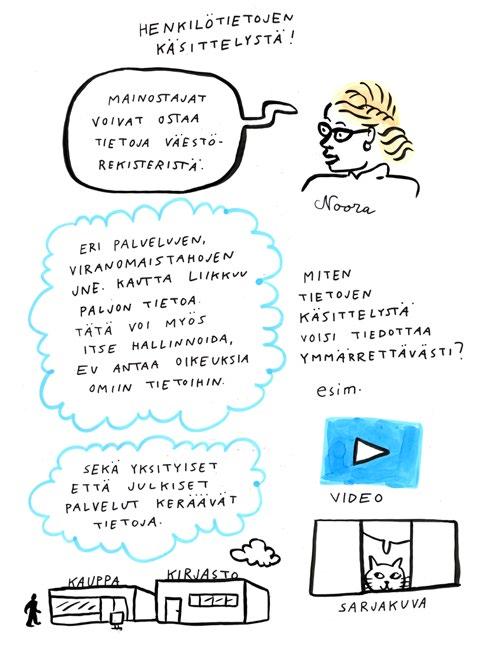 HENKILÖTIETOJEN
KÄSITTELYSTÄ!
MAINOSTAJAT
VOIVAT OSTAA
TIETOJA VÄESTÖ-
REKISTERISTÄ.
Noora
ERI PALVELUJEN,
VIRANOMAISTAHOJEN
JNE. KAUTTA LIIKKUU
PALJON TIETOA.
TÄTÄ VOI MYÖS
ITSE HALLINNOIDA,
EU ANTAA OIKEUKSIA
OMIIN TIETOIHIN.
MITEN
TIETOJEN
KÄSITTELYSTÄ
VOISI TIEDOTTAA
YMMÄRRETTÄVÄSTI?
esim.
VIDEO
SEKÄ YKSITYISET
ETTÄ JULKISET
PALVELUT KERÄÄVÄT
TIETOJA.
KAUPPA
KIRJASTO
SARJAKUVA